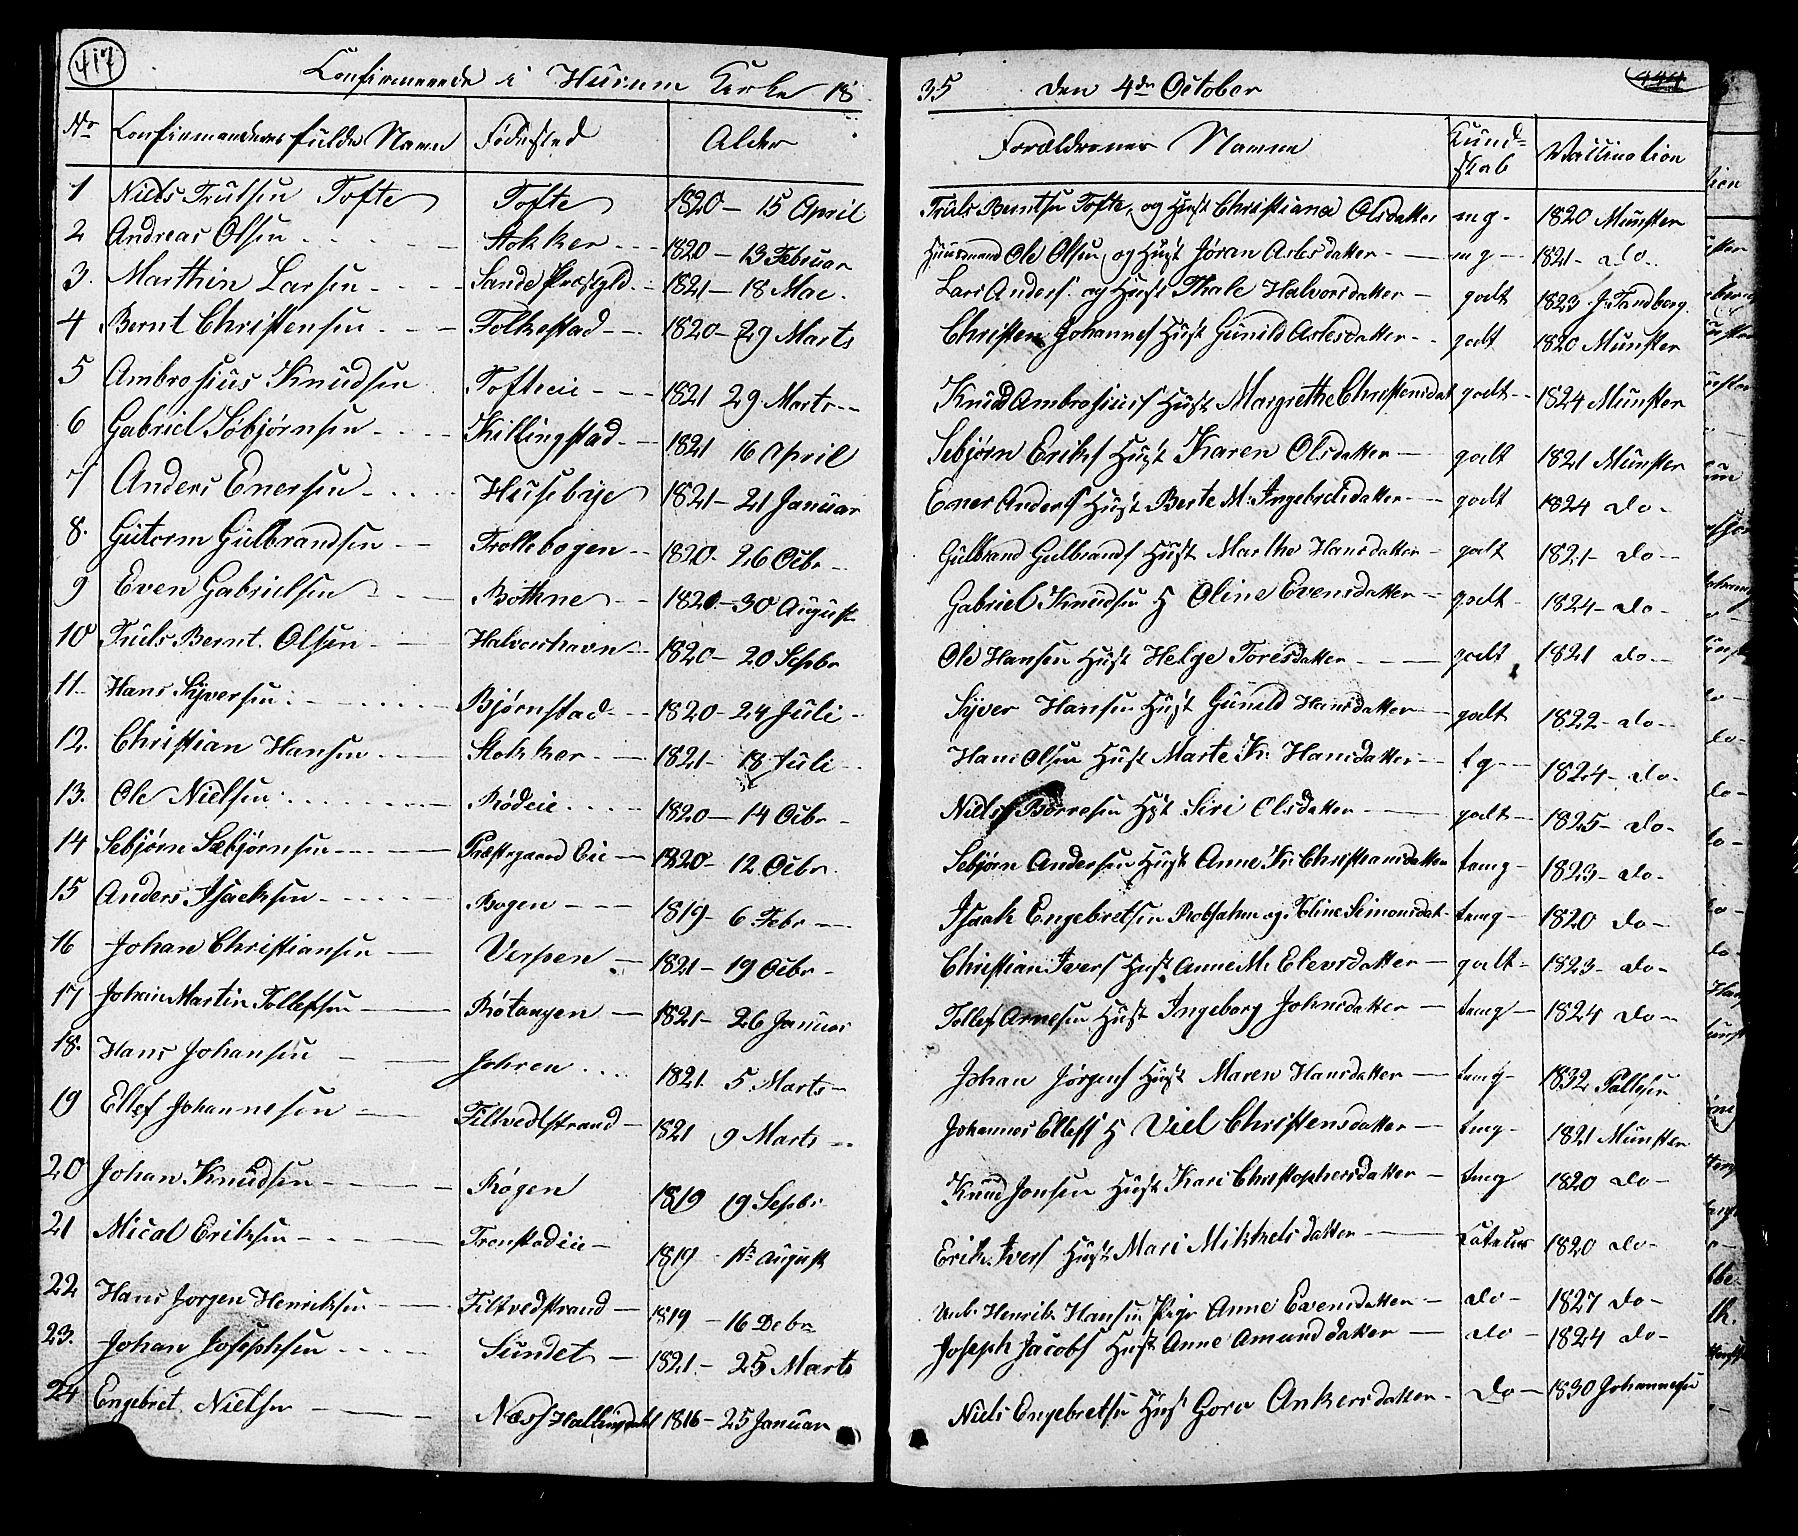 417
Confirmerede i Hurum Kirke 1835 den 4de October 444
No Confirmandernes fulde Navne Fødested Alder Forældrenes Navne Kund-skab Vaccination
1 Niels Trulsen Tofte Tofte 1820 - 15 April Truls Berntsn Tofte og Hust Christiana Olsdatter mg - 1820 Münster
2 Andreas Olsen Stokker 1820 - 13 Februar Huusmand Ole Olsen og Hust Jøran Aslesdatter mg - 1821 - do -
3. Marthin Larsen Sande Præstgld. 1821 - 18 Mai. Lars Anders. og Hust Thale Halvorsdatter godt 1823 J. Tandberg.
4 Bernt Christensen Folkestad 1820 - 29 Marts Christen Johannes Hust Gunild Aslesdatter godt 1820 Münster
5 Ambrosius Knudsen Tofteeie 1821 29 Marts Knud Ambrosius Hust Margrethe Christensdat godt 1824 Münster
6 Gabriel Søbjørnsen Killingstad 1821 16 April Sebjørn Eriks Hust Karen Olsdatter godt 1821 Münster
7 Anders Enersen Husebye 1821 - 21 Januar Ener Anders Hust Berte M. Ingebretsdatter godt 1824 do -
8. Gutorm Gulbrandsen Trollebogen 1820. 26 Octbr Gulbrand Gulbrands Hust Marthe Hansdatter godt 1821 - do -
9 Even Gabrielsen Bothne 1820 - 30 August Gabriel Knudsen H Oline Evensdatter godt 1824 - do -
10 Truls Bernt. Olsen Halvorshavn 1820 - 20 Sepbr Ole Hansen Hust Helge Toresdatter godt 1821 do -
11. Hans Syversen Bjørnstad 1820 - 24 Juli Syver Hansen Hust Gunild Hansdatter godt 1822 - do -
12. Christian Hansen Stokker 1821 - 18 Juli Hans Olsen Hust Marte Kr. Hansdatter tg 1824 - do -
13. Ole Nielsen Rødeie 1820 - 14 Octbr Niels Børresen Hst Siri Olsdatter godt 1825 - do -
14 Sebjørn Sæbjørnsen Præstegaard Eie 1820 - 12 Octbr. Sebjørn Andersen Hust Anne Kr. Christiansdatter tamg - 1823 - do -
15 Anders Isacksen Bogen 1819 - 6 Febr Isaak Engebretsen Robsahm og Oline Simonsdat tamg - 1820 do -
16 Johan Christiansen Verpen 1821 - 19 Octbr Christian Ivers Hust Anne M. Elevsdatter godt - 1823 - do -
17 Johan Martin Tollefsen Røtangen 1821 - 26 Januar Tollef Arnesen Hust Ingeborg Johnsdatter tamg 1824 do -
18. Hans Johansen Johren 1821. 5 Marts Johan Jørgens Hust Maren Hansdatter tamg - 1832 Pallesen
19 Ellef Johannesen Filtvedtstrand 1821 9 Marts Johannes Ellefs H Viel Christensdatter tmg - 1821 Münster
20 Johan Knudsen Røgen 1819 19 Sepbr Knud Jonsen Hust Kari Christophersdatter tmg 1820 do -
21 Micael Eriksen Tronstadeie 1819 - 1ste August Erik Ivers Hust Mari Mikkelsdatter 1820 do -
22 Hans Jørgen Henriksen Filtvedstrand 1819 - 16 Debr Henrik Hansen Pige Anne Evensdatter do - 1827 do -
23. Johan Josephsen Sundet 1821 - 25 Marts Joseph Jacobs Hust Anne Amunddatter do - 1824 do -
24 Engebret Nielsen Næss Hallingdahl 1816 - 25 Januar Niels Engebretsn Hust Goro Ankersdatter do 1830 Johannesen